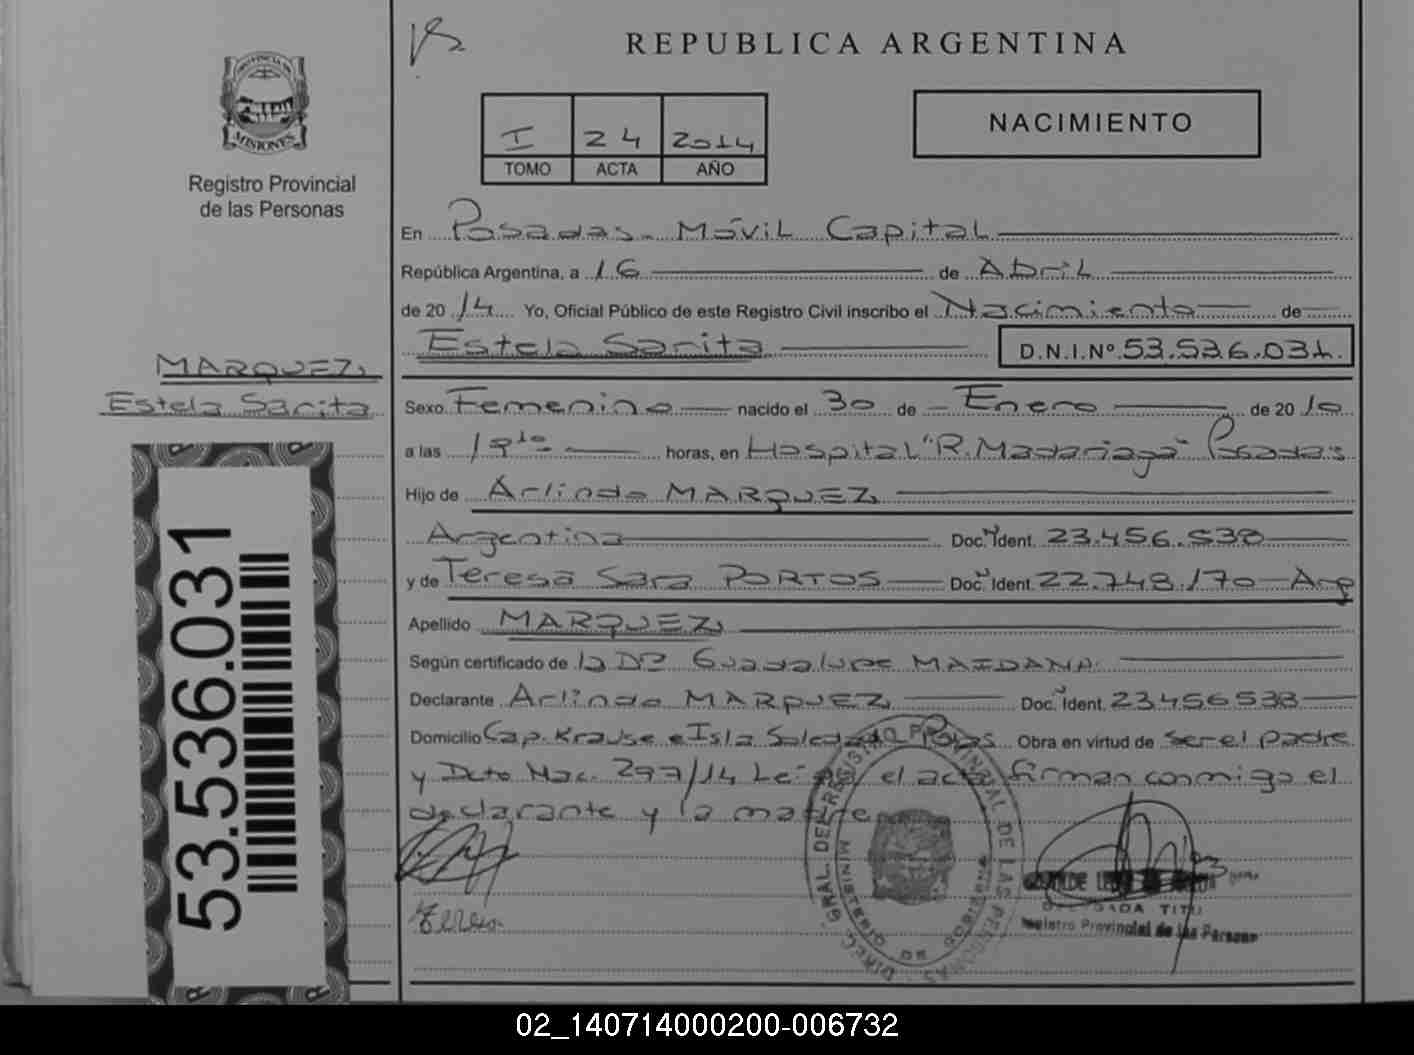 PROVINCIA DE
MISIONES
Registro Provincial
de las Personas
REPUBLICA ARGENTINA
I 24 2014
TOMO ACTA AÑO
NACIMIENTO
En Posadas - Móvil Capital
República Argentina, a 16 de Abril
de 20 14 Yo, Oficial Público de este Registro Civil inscribo el Nacimiento de
Estela Sarita D.N.I.Nº 53.536.031.
MARQUEZ,
Estela Sarita
Sexo Femenino nacido el 30 de Enero de 20 10
a las horas, en Hospital "R. Madariaga" Posadas
Hijo de Arlindo MARQUEZ,
Argentina Doc. Nº Ident. 23.456.538
y de Teresa Sara PORTOS Doc. Nº Ident. 22.748.170 Arg
Apellido MARQUEZ,
Según certificado de la Dra Guadalupe MAIDANA.
Declarante Arlindo MARQUEZ Doc. Nº Ident. 23456538
Domicilio Cap. Krause e Isla Soledad Obra en virtud de ser el padre
y Dcto Nac. 297/14 el acta firman conmigo el
declarante y la madre
53.536.031
DIREC. GRAL. DEL REGISTRO PROVINCIAL DE LAS PERSONAS
MINISTERIO DE GOBIERNO
Registro Provincial de las Personas
02_140714000200-006732